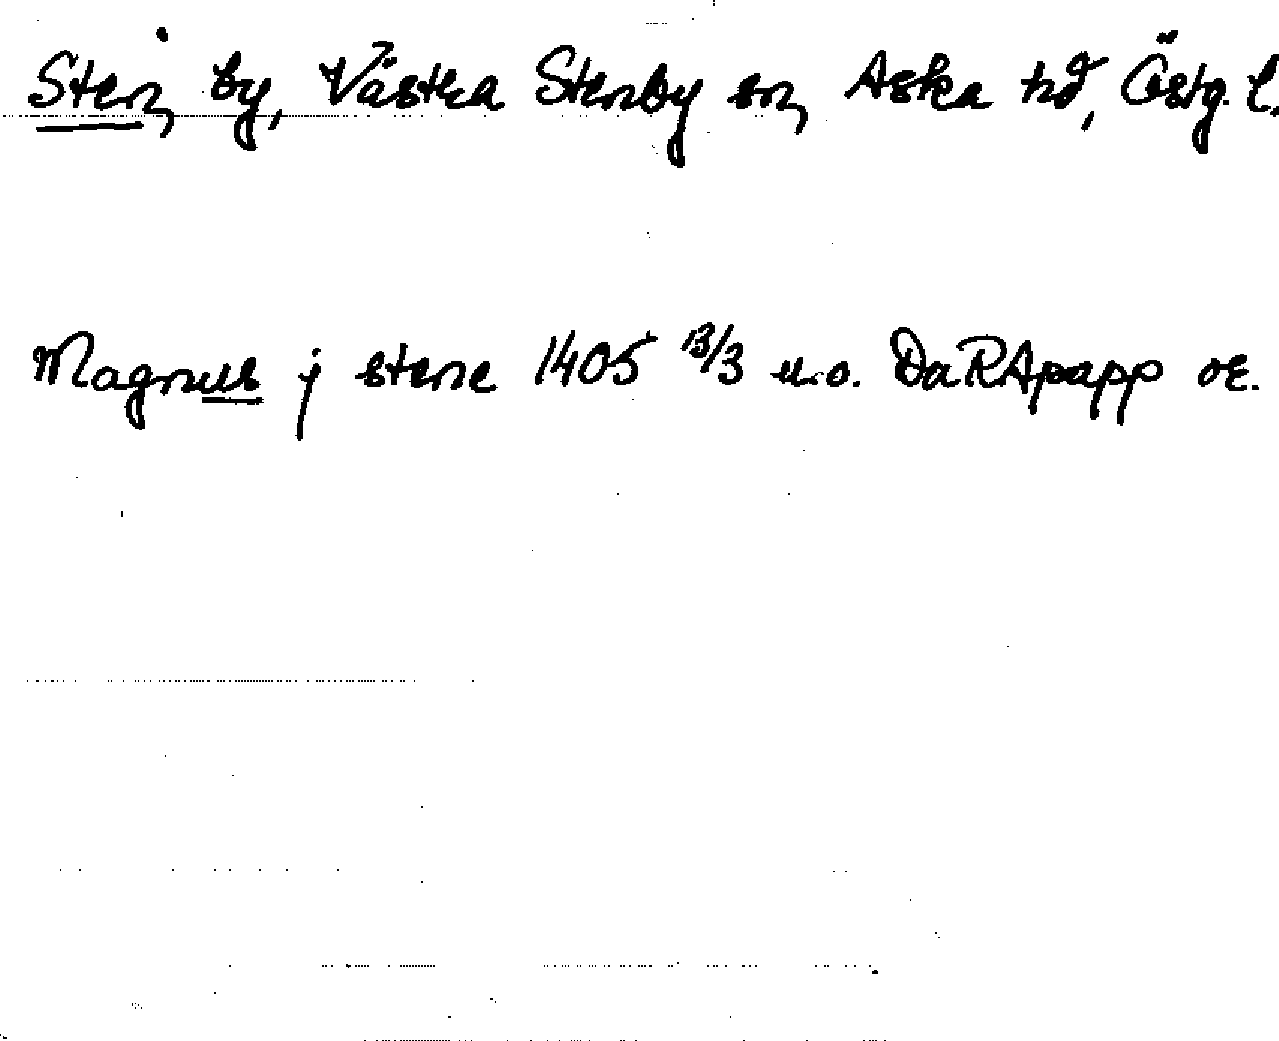 Sten, by, Västra Stenby sn, Aska hd, Östg. l.
Magnus j stene 1405 13/3 u.o. DaRApapp or.